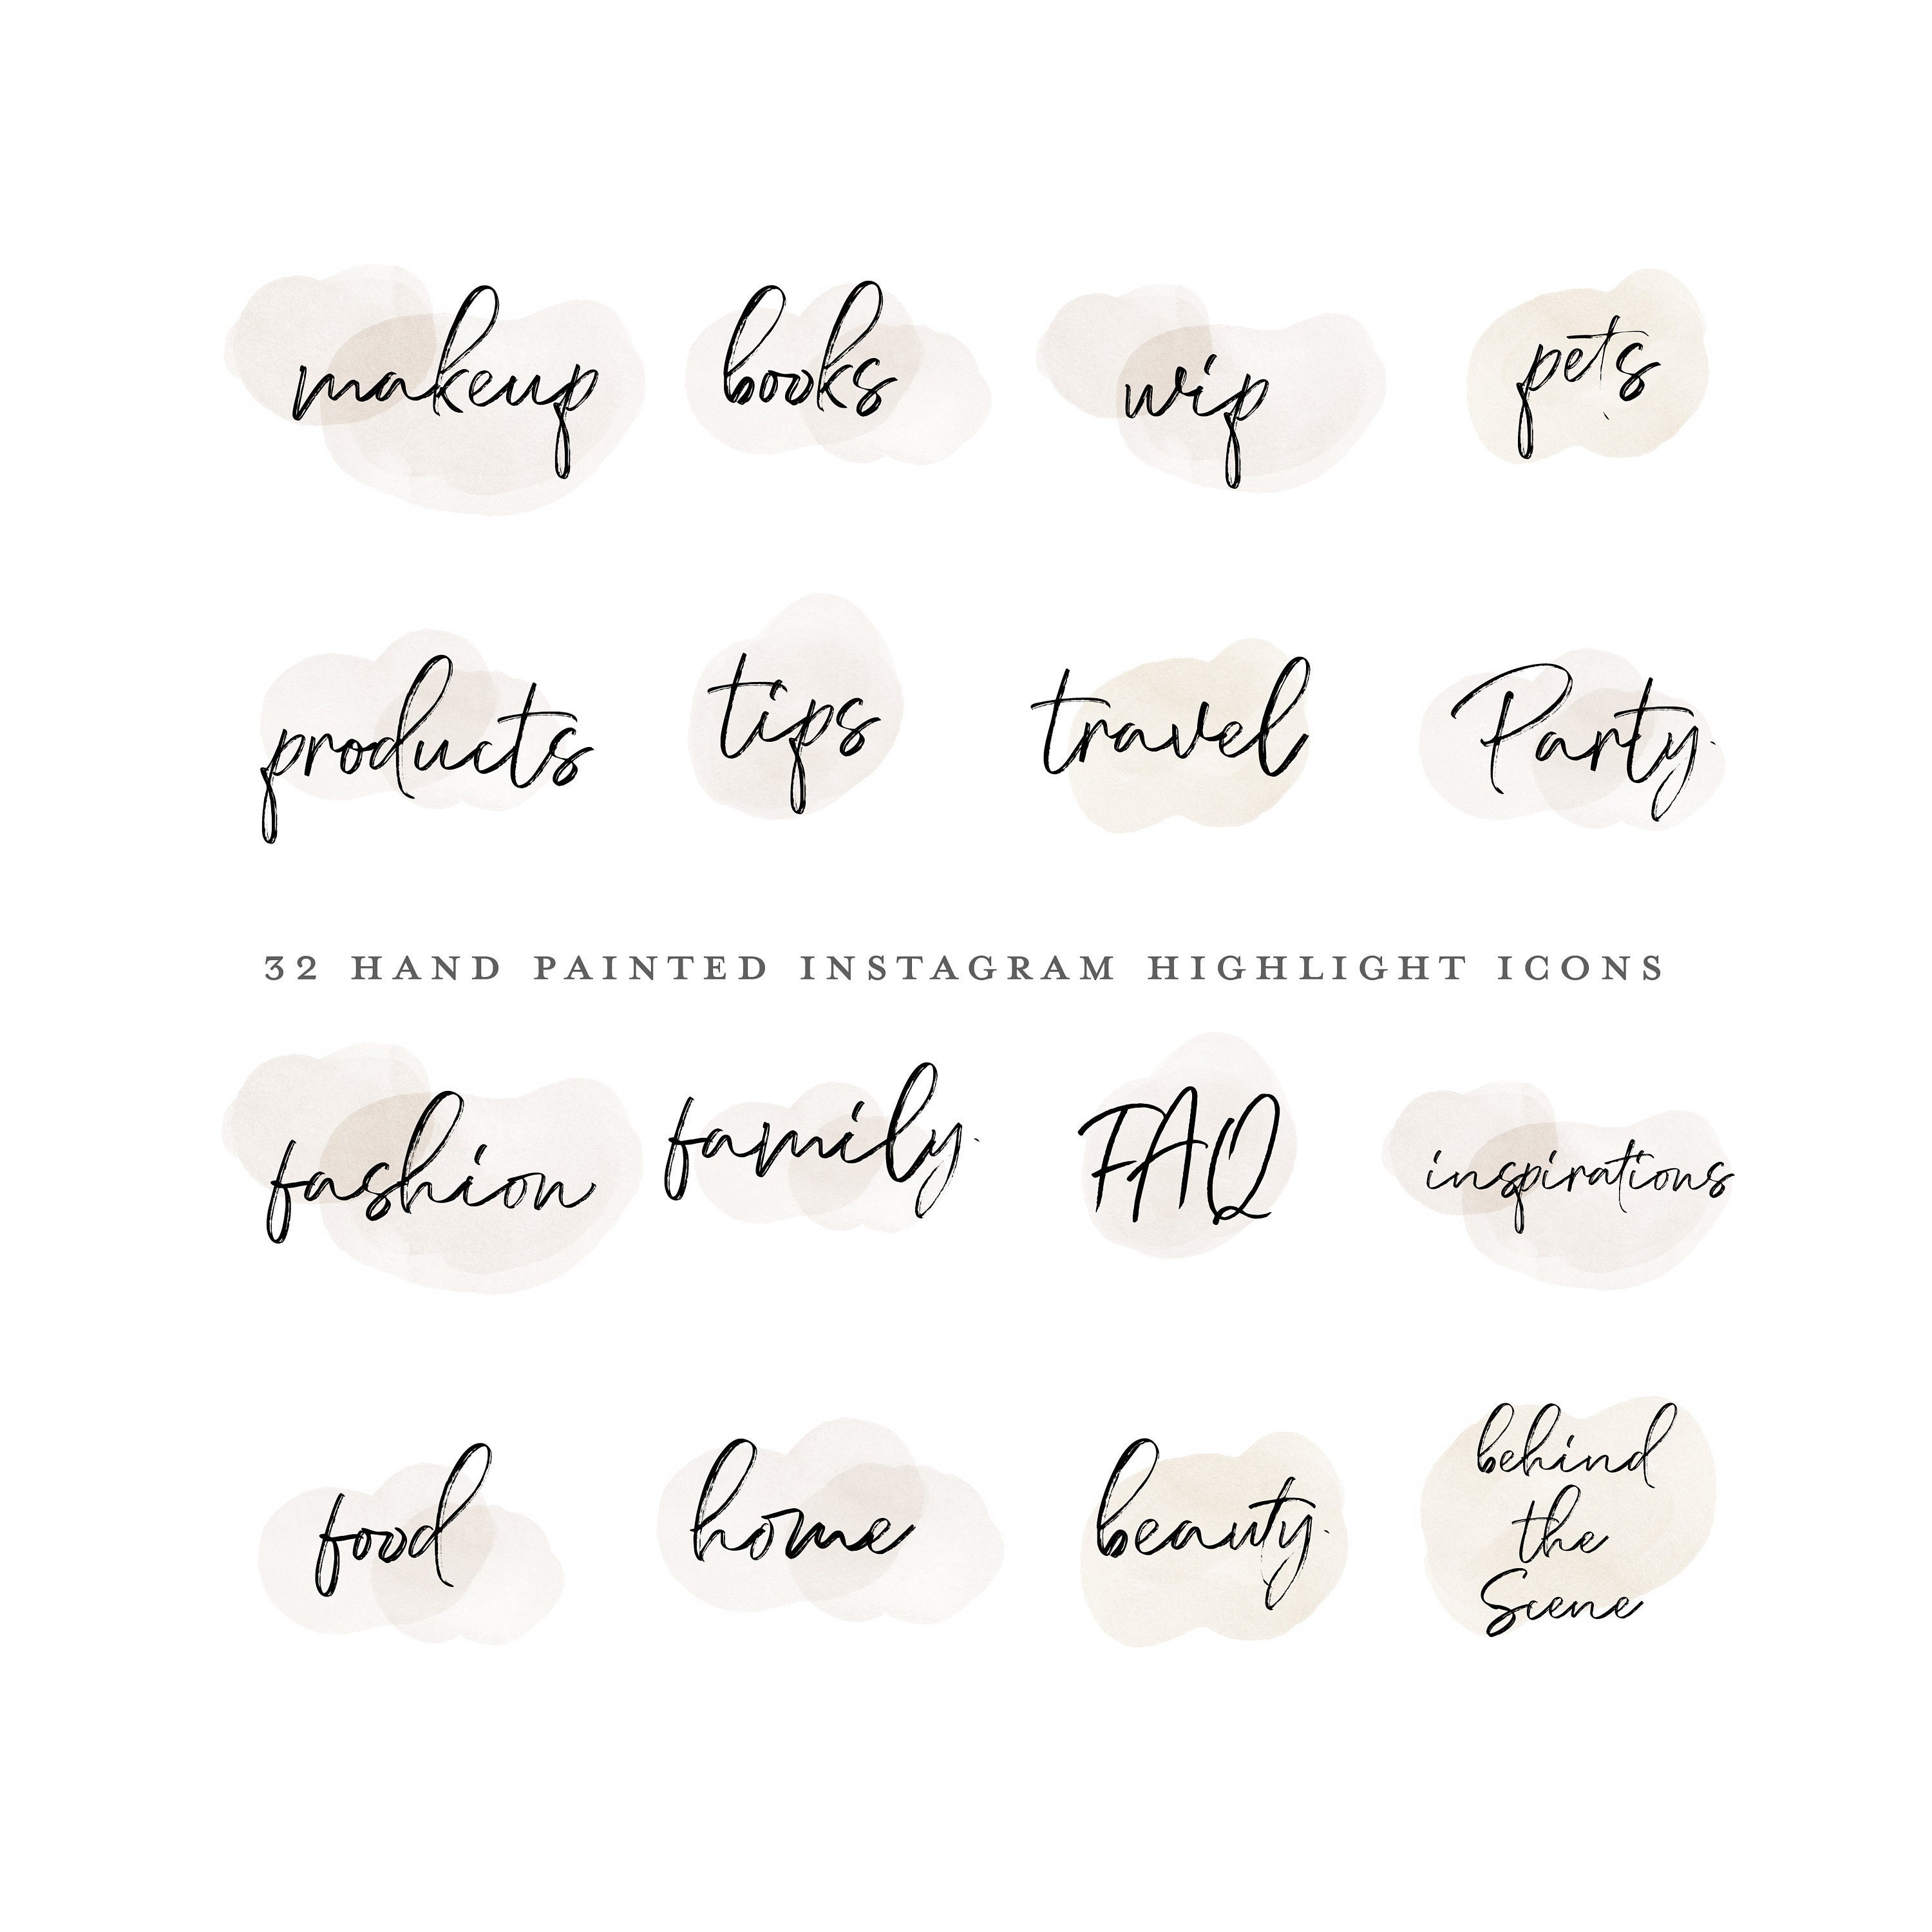 makeup books wip pets
products tips travel Party
32 HAND PAINTED INSTAGRAM HIGHLIGHT ICONS
fashion family FAQ inspirations
food home beauty behind
the
Scene